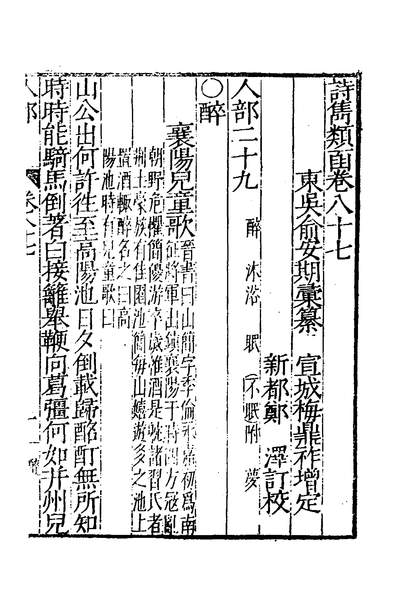 詩雋類函卷八十七
東吳俞安期彙纂　宣城梅鼎祚增定
新都鄭　澤訂校
人部二十九　醉　沐浴　眠(不眠附)　夢
○醉
襄陽兒童歌
晉書曰山簡字季倫永嘉初為南
征將軍出鎮襄陽于時四方寇亂
朝野危懼簡優游卒歲惟酒是躭諸習氏者
荆土豪族有佳園池簡每出嬉遊多之池上
置酒輒醉名之曰高
陽池時有兒童歌曰
山公出何許往至高陽池日夕倒載歸酩酊無所知
時時能騎馬倒著白接䍦舉鞭向葛彊何如并州兒
人部　卷八十七　一